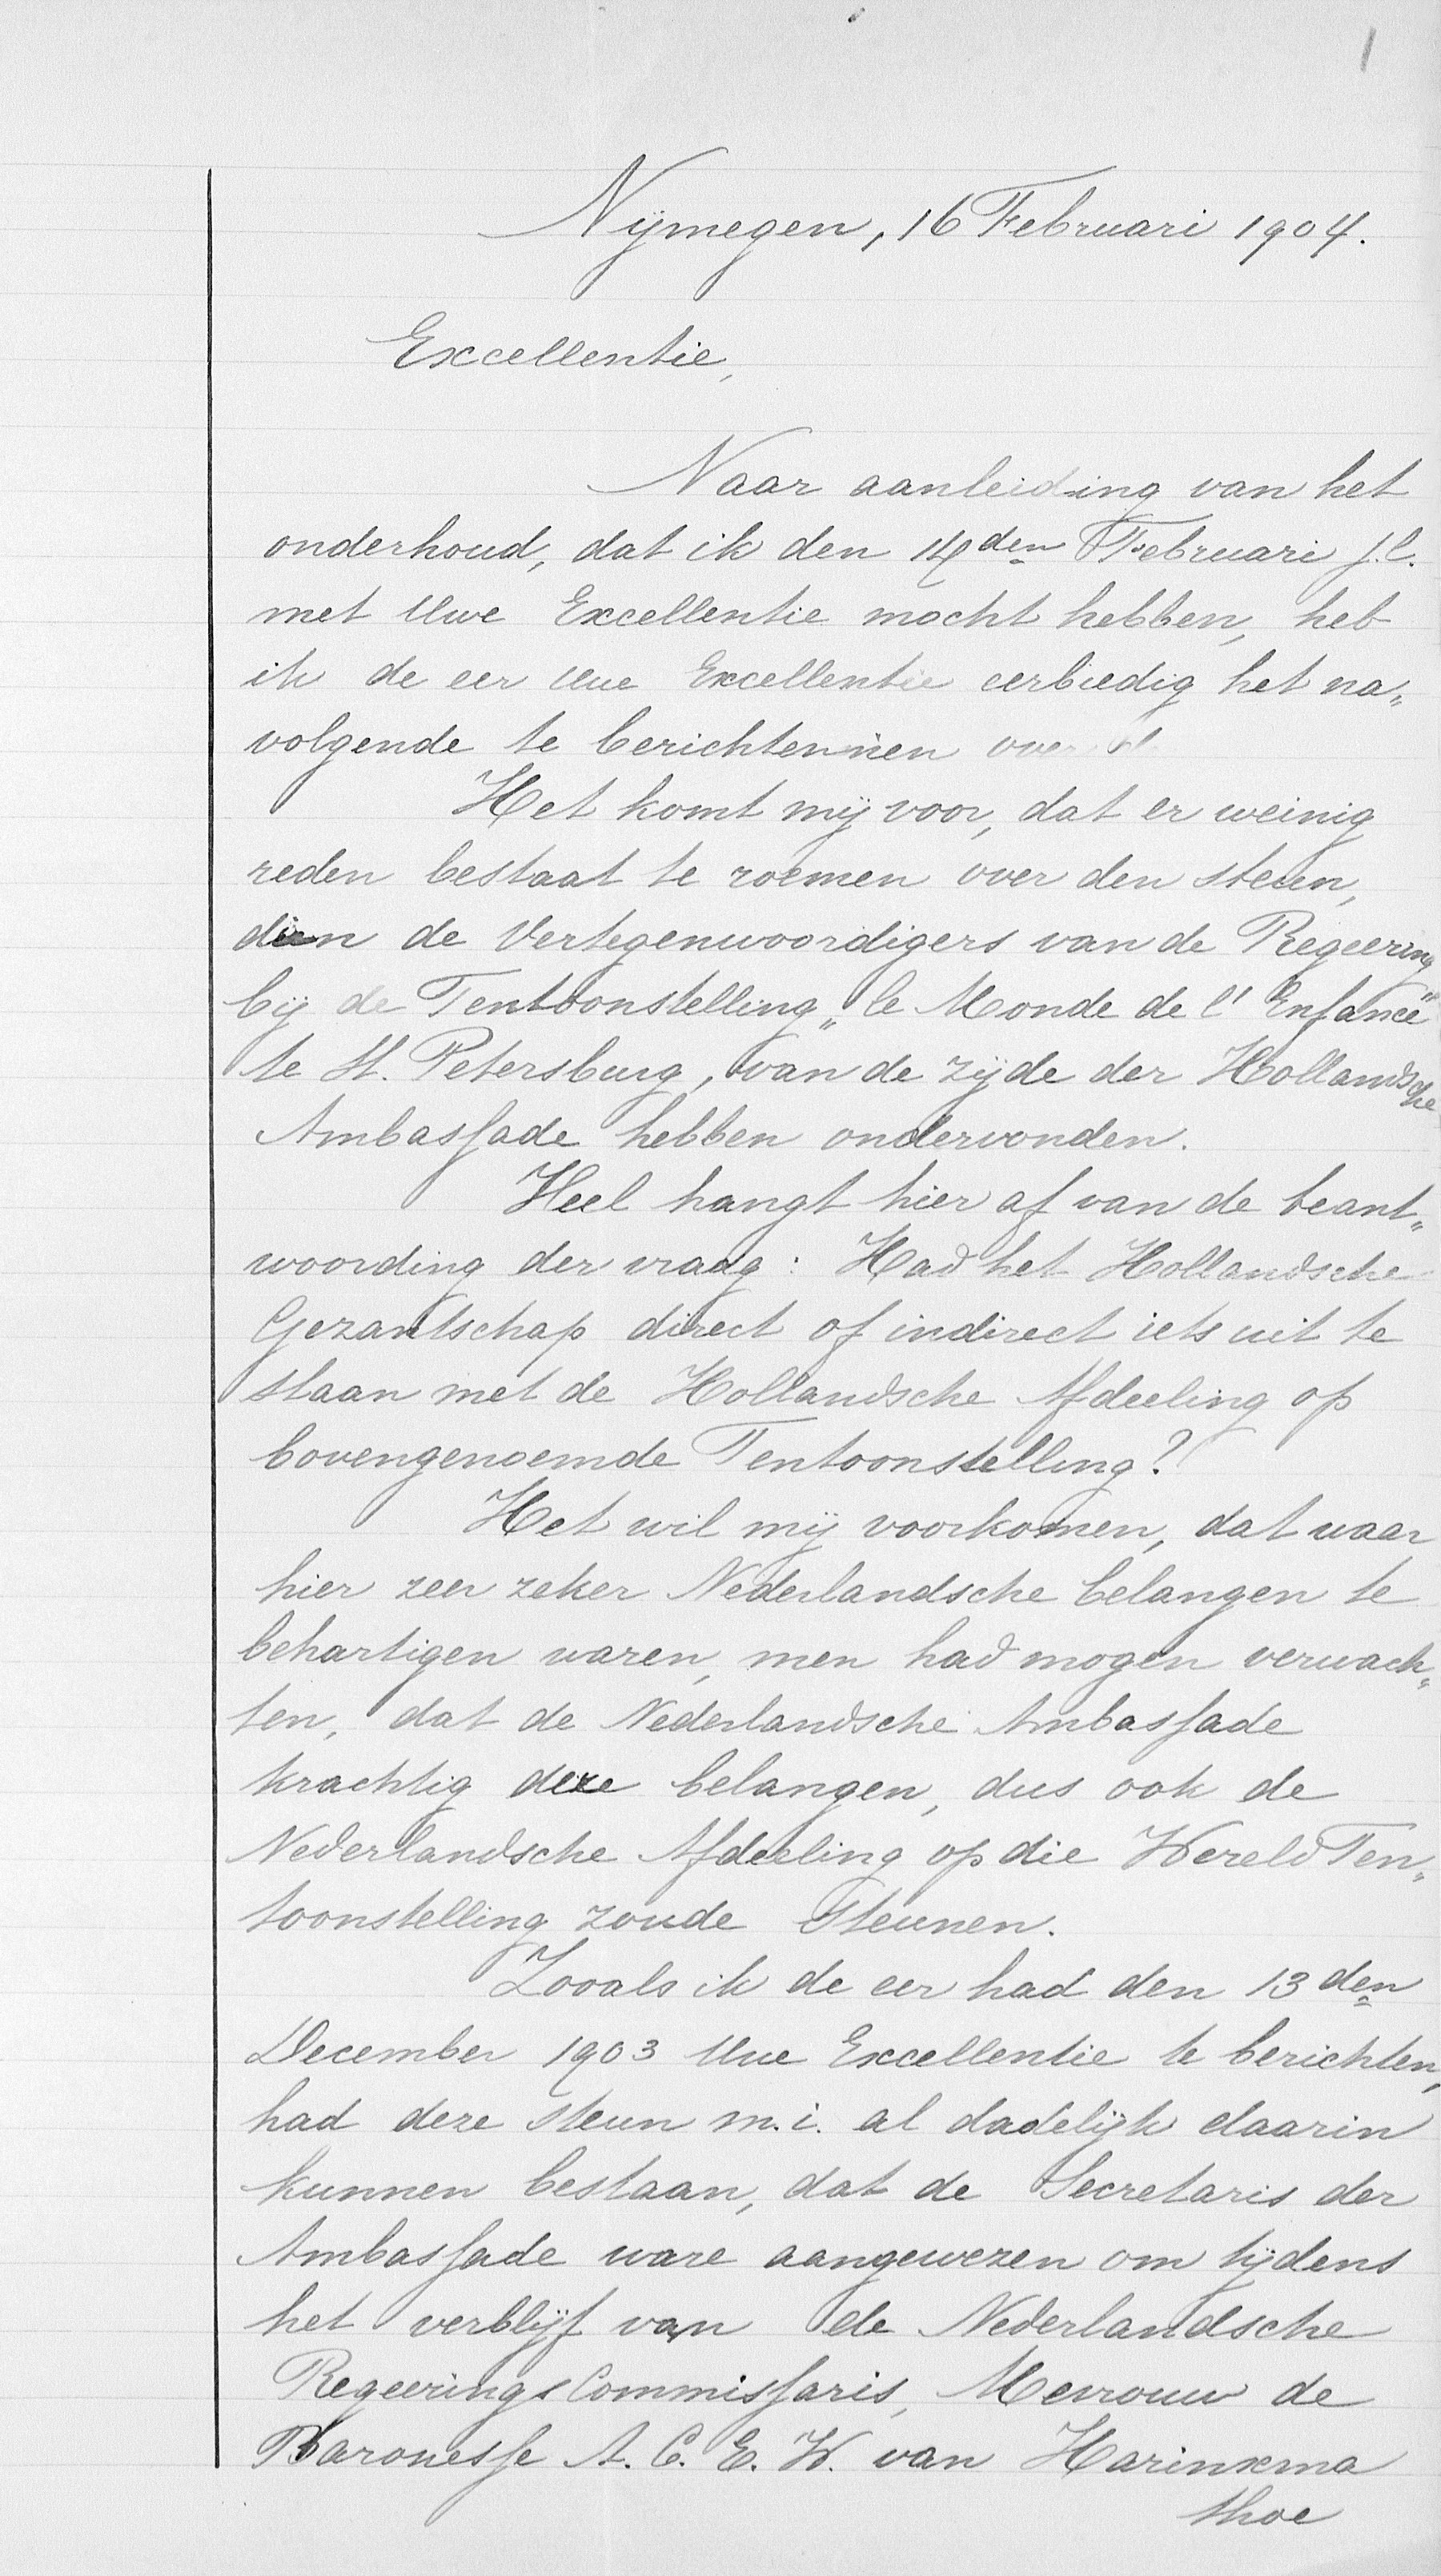 1
Nijmegen, 16 Februari 1904.
Excellentie,
Naar aanleiding van het
onderhoud, dat ik den 14den Februari j.l.
met Uwe Excellentie mocht hebben, heb
ik de eer Uwe Excellentie eerbiedig het na„
volgende te berichten
Het komt mij voor, dat er weinig
reden bestaat te roemen over den steun,
dien de Vertegenwoordigers van de Regeering
bij de Tentoonstelling „le Monde de l'Enfance"
te St. Petersburg, van de zijde der Hollandsche
Ambassade hebben ondervonden.
Heel hangt hier af van de beant„
woording der vraag: Had het Hollandsche
Gezantschap direct of indirect iets uit te
staan met de Hollandsche Afdeeling op
bovengenoemde Tentoonstelling?
Het wil mij voorkomen, dat waar
hier zeer zeker Nederlandsche belangen te
behartigen waren, men had mogen verwach„
ten, dat de Nederlandsche Ambassade
krachtig deze belangen, dus ook de
Nederlandsche Afdeeling op die Wereld Ten„
toonstelling zoude steunen.
Zooals ik de eer had den 13den
December 1903 Uwe Excellentie te berichten,
had deze steun m.i. al dadelijk daarin
kunnen bestaan, dat de Secretaris der
Ambassade ware aangewezen om tijdens
het verblijf van de Nederlandsche
Regeerings Commissaris, Mevrouw de
Baronesse A. C. E. W. van Harinxma
thoe